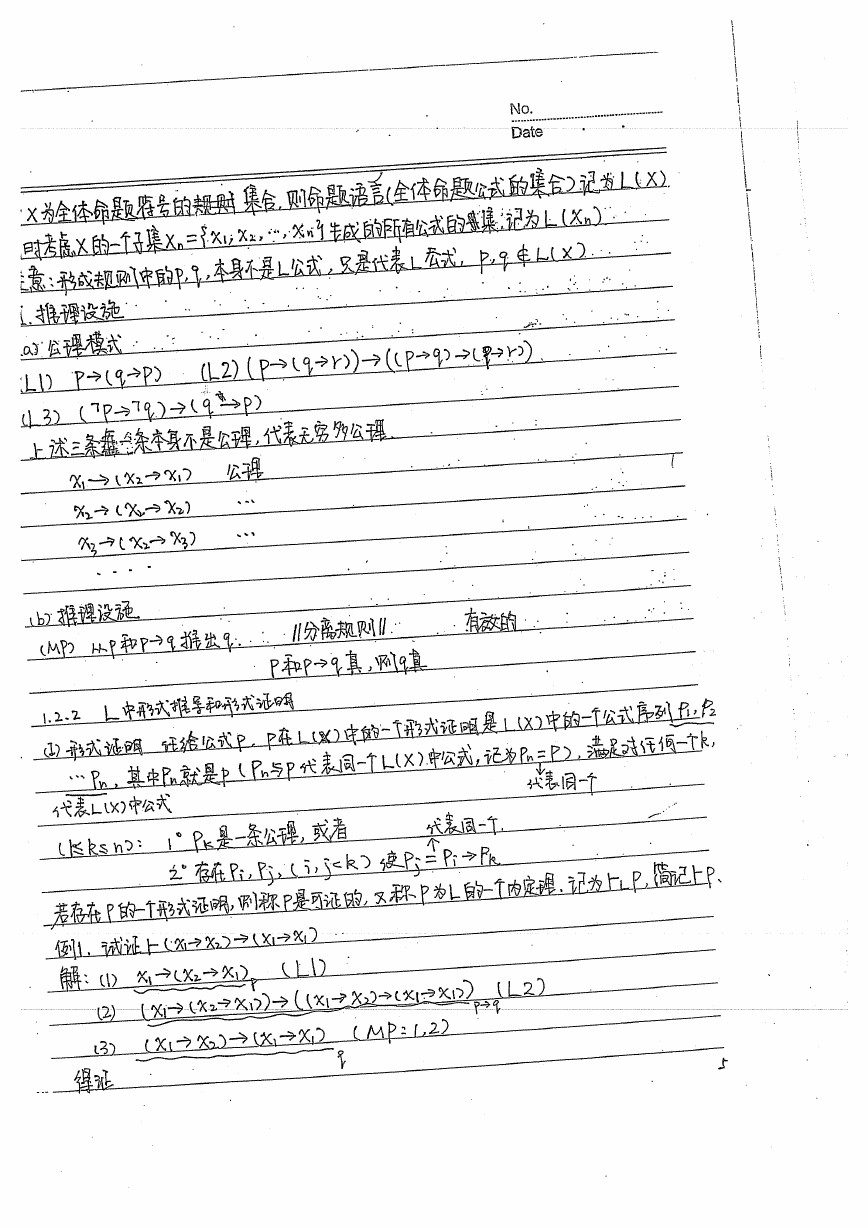 No.
Date
X为全体命题符号的集合,则命题语言(全体命题公式的集合)记为L(X)
时考虑X的一个子集Xn={x₁,x₂,…,xn}生成的所有公式的集,记为L(Xn)
意:形成规则中的p,q,本身不是L公式,只是代表L公式, p,q∉L(X)
推理设施
(a) 公理模式
(L1) p→(q→p) (L2) (p→(q→r))→((p→q)→(p→r))
(L3) (¬p→¬q)→(q→p)
上述三条本身不是公理,代表无穷多公理.
x₁→(x₂→x₁) 公理
x₂→(x₂→x₂) …
x₃→(x₂→x₃) …
....
(b) 推理设施
(MP) 从p和p→q推出q. ||分离规则|| 有效的
p和p→q真,则q真
1.2.2 L中形式推导和形式证明
(1) 形式证明 任给公式p, p在L(X)中的一个形式证明是L(X)中的一个公式序列P₁,P₂
…Pn, 其中Pn就是p(Pn与p代表同一个L(X)中公式,记为Pn=P), 满足对任何一个k,
代表L(X)中公式 代表同一个
(1≤k≤n): 1° Pk是一条公理,或者 代表同一个.
2° 存在Pi,Pj,(i,j<k)使Pj=Pi→Pk
若存在P的一个形式证明,则称P是可证的,又称P为L的一个内定理.记为⊢LP,简记⊢P、
例1. 试证⊢(x₁→x₂)→(x₁→x₁)
解: (1) x₁→(x₂→x₁) p (L1)
(2) (x₁→(x₂→x₁))→((x₁→x₂)→(x₁→x₁)) p→q (L2)
(3) (x₁→x₂)→(x₁→x₁) (MP:1,2)
q
得证
5